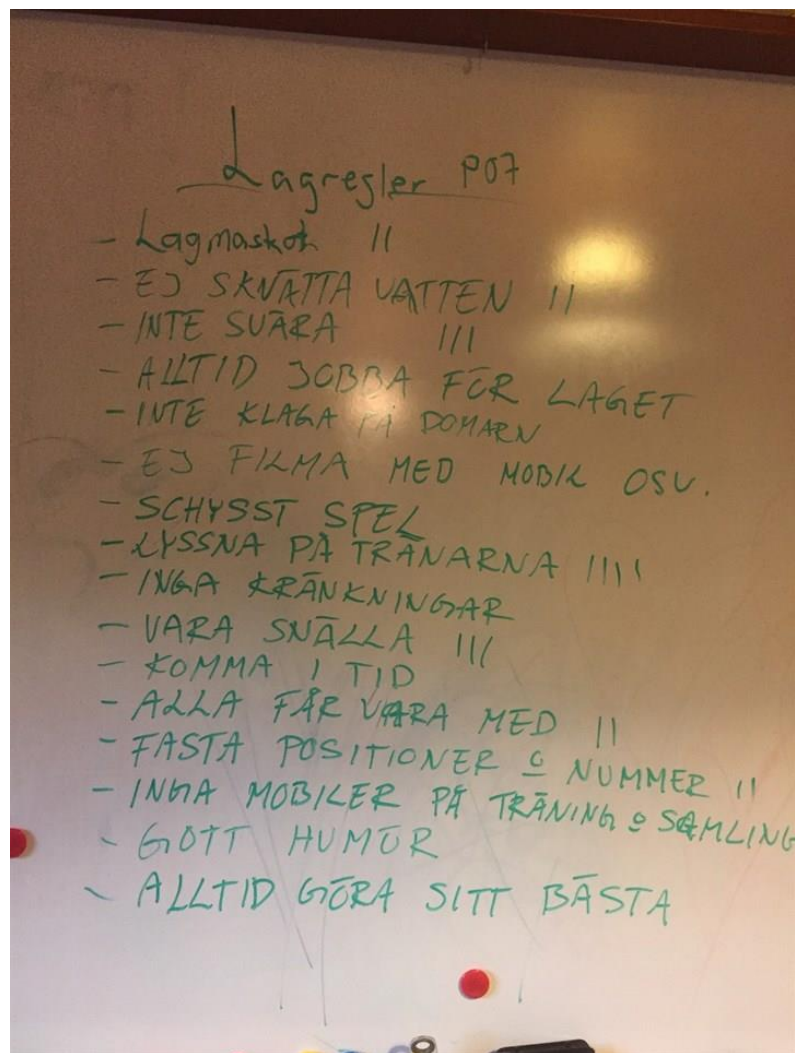 Lagregler P07
- Lagmaskot II
- EJ SKVÄTTA VATTEN II
- INTE SVÄRA III
- ALLTID JOBBA FÖR LAGET
- INTE KLAGA PÅ DOMARN
- EJ FILMA MED MOBIL OSV.
- SCHYSST SPEL
- LYSSNA PÅ TRÄNARNA IIII
- INGA KRÄNKNINGAR
- VARA SNÄLLA III
- KOMMA I TID
- ALLA FÅR VARA MED II
- FASTA POSITIONER O NUMMER II
- INGA MOBILER PÅ TRÄNING O SAMLING
- GOTT HUMÖR
- ALLTID GÖRA SITT BÄSTA